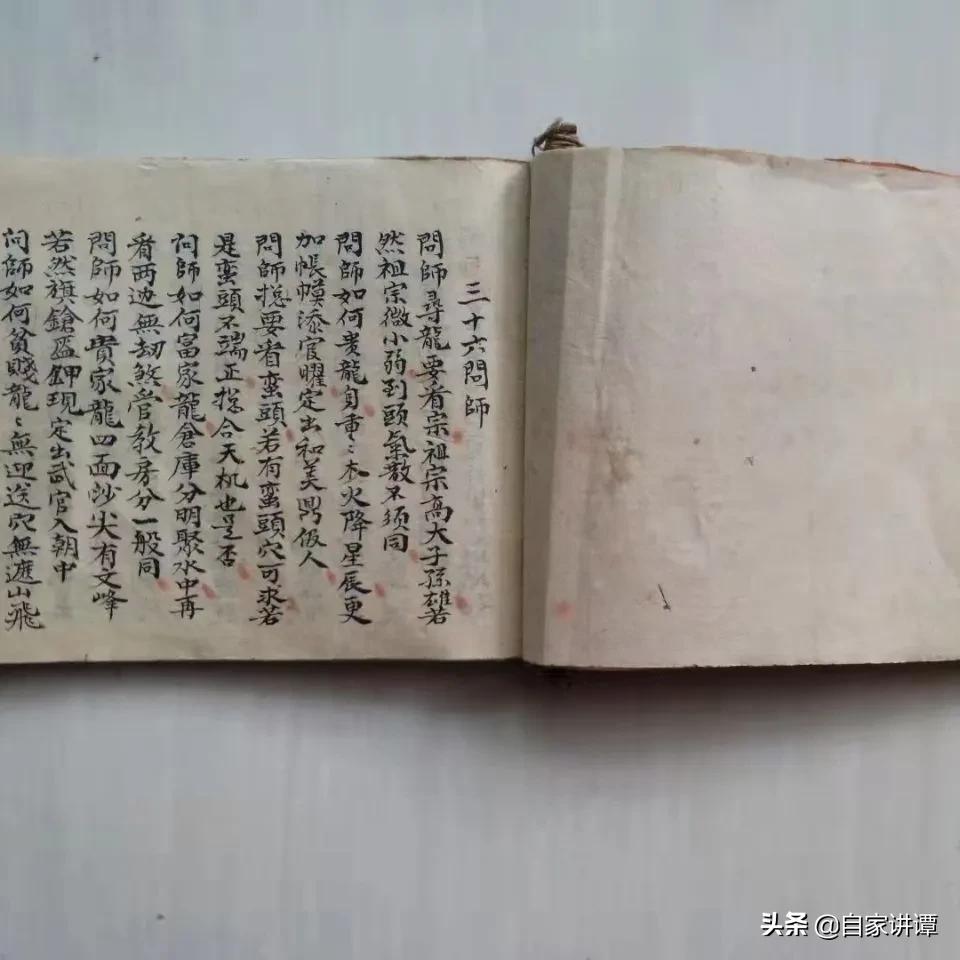 三十六問師
問師尋龍要看宗祖宗高大子孫雄若
然祖宗微小弱到頭氣數不須同
問師如何貴龍身重〻木火降星辰更
加帳幙添官曜定出和美鼎俊人
問師揔要看蛮頭若有蛮頭穴可求若
是蛮頭不端正揔合天机也是否
问師如何富家龍倉庫分明聚水中再
看两边無刼煞管教房分一般同
問師如何貴家龍四面砂尖有文峰
若然旗鎗盔鉀現定出武官入朝中
问師如何貧賤龍〻無迎送穴無遮山飛
头条 @自家讲谭